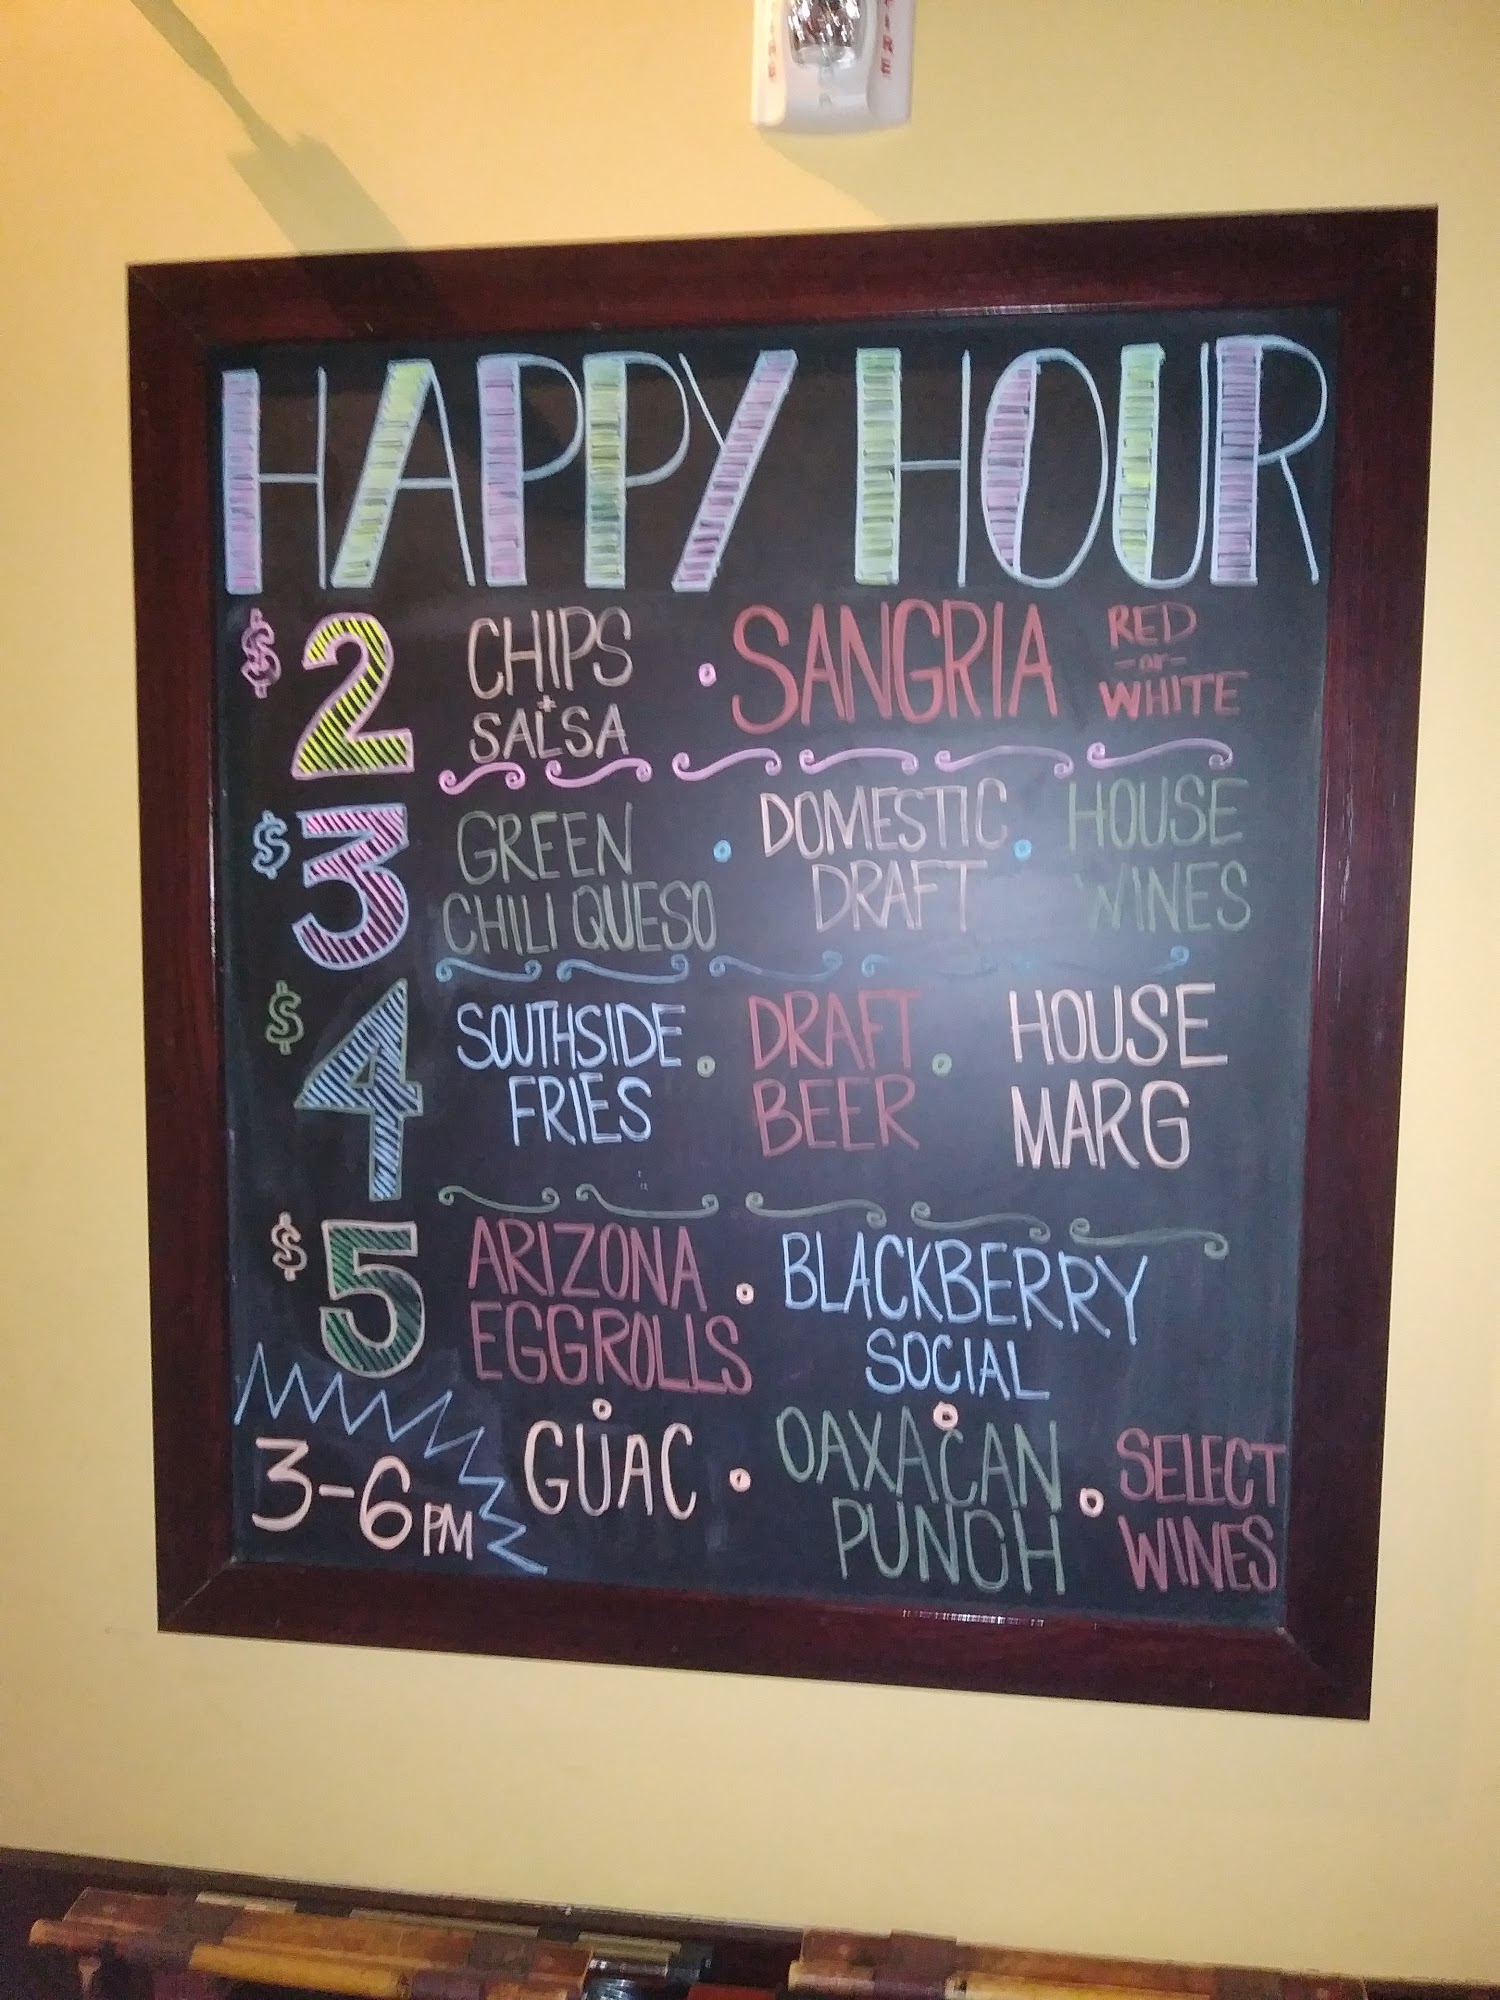 FIRE
HAPPY HOUR
$2 CHIPS + SALSA • SANGRIA RED -or- WHITE
$3 GREEN CHILI QUESO • DOMESTIC DRAFT • HOUSE WINES
$4 SOUTHSIDE FRIES • DRAFT BEER • HOUSE MARG
$5 ARIZONA EGGROLLS • BLACKBERRY SOCIAL
• GUAC • OAXACAN PUNCH • SELECT WINES
3-6 PM